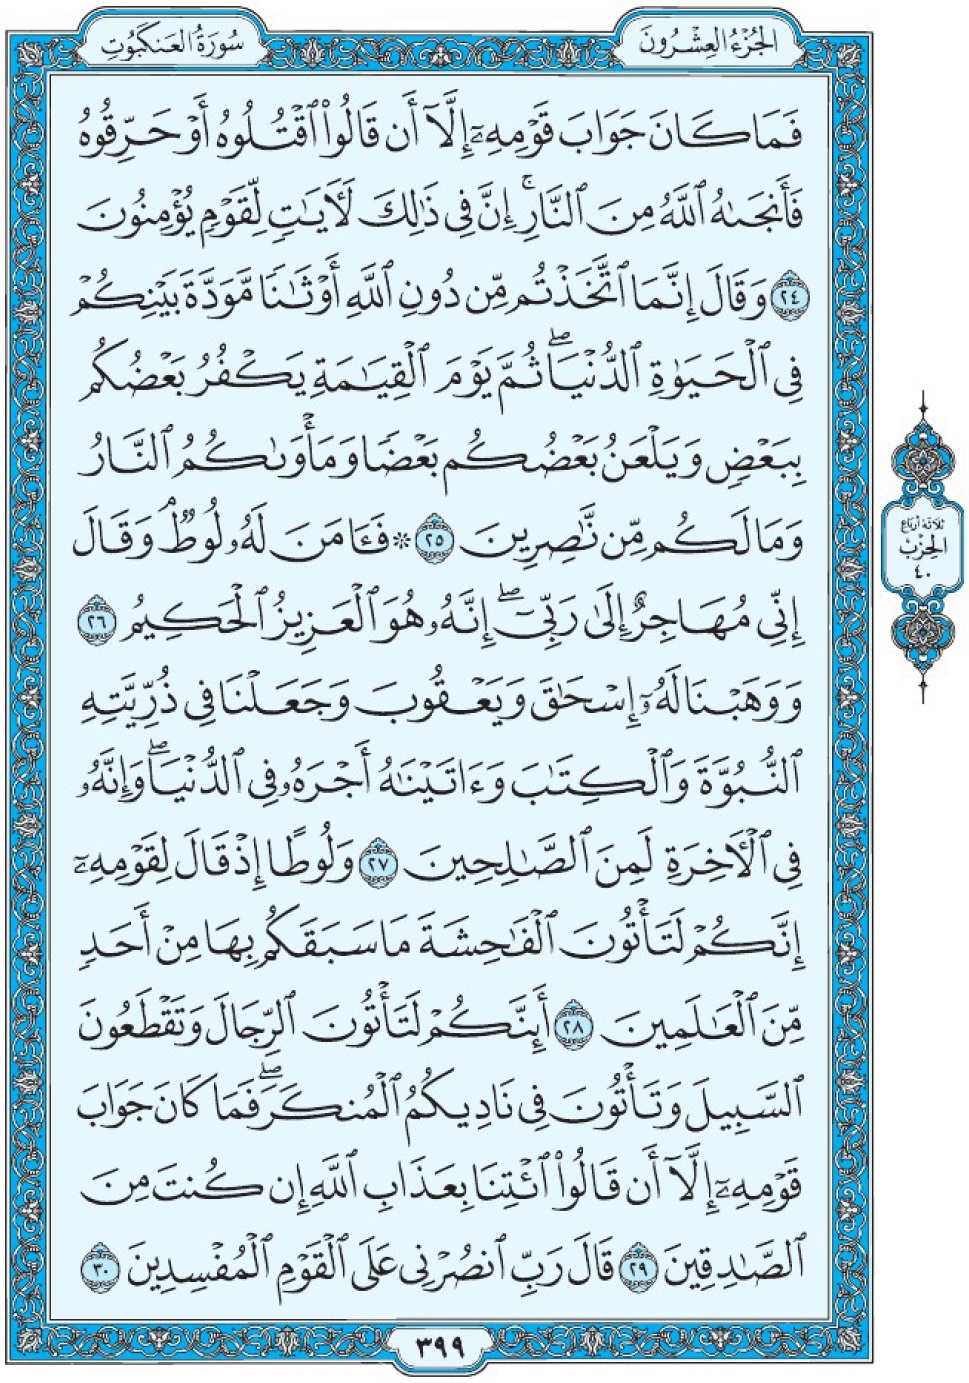 الجزء العشرون
سورة العنكبوت
فَمَا كَانَ جَوَابَ قَوْمِهِۦٓ إِلَّآ أَن قَالُوا۟ ٱقْتُلُوهُ أَوْ حَرِّقُوهُ
فَأَنجَىٰهُ ٱللَّهُ مِنَ ٱلنَّارِ ۚ إِنَّ فِى ذَٰلِكَ لَـَٔايَـٰتٍ لِّقَوْمٍ يُؤْمِنُونَ
٢٤ وَقَالَ إِنَّمَا ٱتَّخَذْتُم مِّن دُونِ ٱللَّهِ أَوْثَـٰنًا مَّوَدَّةَ بَيْنِكُمْ
فِى ٱلْحَيَوٰةِ ٱلدُّنْيَا ۖ ثُمَّ يَوْمَ ٱلْقِيَـٰمَةِ يَكْفُرُ بَعْضُكُم
بِبَعْضٍ وَيَلْعَنُ بَعْضُكُم بَعْضًا وَمَأْوَىٰكُمُ ٱلنَّارُ
وَمَا لَكُم مِّن نَّـٰصِرِينَ ٢٥ ۞ فَـَٔامَنَ لَهُۥ لُوطٌ ۘ وَقَالَ
إِنِّى مُهَاجِرٌ إِلَىٰ رَبِّىٓ ۖ إِنَّهُۥ هُوَ ٱلْعَزِيزُ ٱلْحَكِيمُ ٢٦
وَوَهَبْنَا لَهُۥٓ إِسْحَـٰقَ وَيَعْقُوبَ وَجَعَلْنَا فِى ذُرِّيَّتِهِ
ٱلنُّبُوَّةَ وَٱلْكِتَـٰبَ وَءَاتَيْنَـٰهُ أَجْرَهُۥ فِى ٱلدُّنْيَا ۖ وَإِنَّهُۥ
فِى ٱلْـَٔاخِرَةِ لَمِنَ ٱلصَّـٰلِحِينَ ٢٧ وَلُوطًا إِذْ قَالَ لِقَوْمِهِۦٓ
إِنَّكُمْ لَتَأْتُونَ ٱلْفَـٰحِشَةَ مَا سَبَقَكُم بِهَا مِنْ أَحَدٍ
مِّنَ ٱلْعَـٰلَمِينَ ٢٨ أَئِنَّكُمْ لَتَأْتُونَ ٱلرِّجَالَ وَتَقْطَعُونَ
ٱلسَّبِيلَ وَتَأْتُونَ فِى نَادِيكُمُ ٱلْمُنكَرَ ۖ فَمَا كَانَ جَوَابَ
قَوْمِهِۦٓ إِلَّآ أَن قَالُوا۟ ٱئْتِنَا بِعَذَابِ ٱللَّهِ إِن كُنتَ مِنَ
ٱلصَّـٰدِقِينَ ٢٩ قَالَ رَبِّ ٱنصُرْنِى عَلَى ٱلْقَوْمِ ٱلْمُفْسِدِينَ ٣٠
ثلاثة أرباع
الحزب
٤٠
٣٩٩